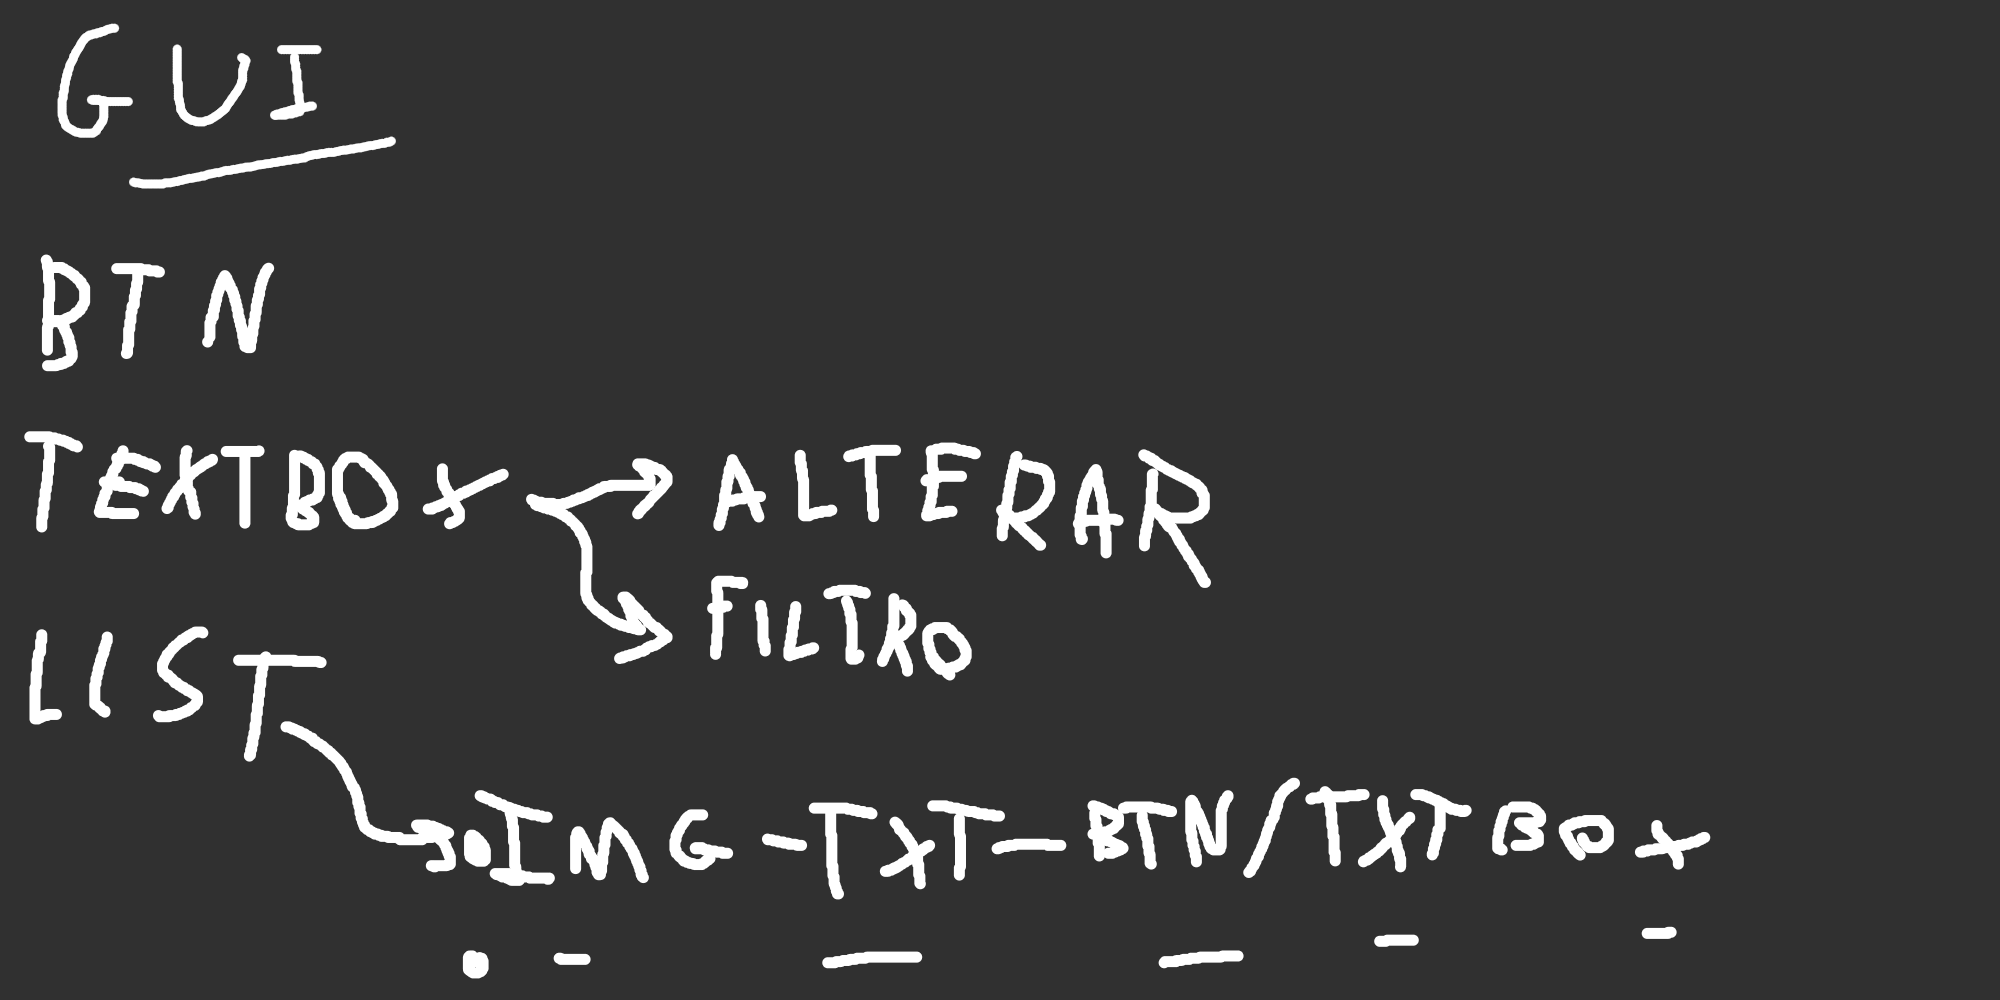 GUI
BTN
TEXTBOX → ALTERAR
→ FILTRO
LIST
→ • IMG - TXT - BTN/TXTBOX
• - - - - -